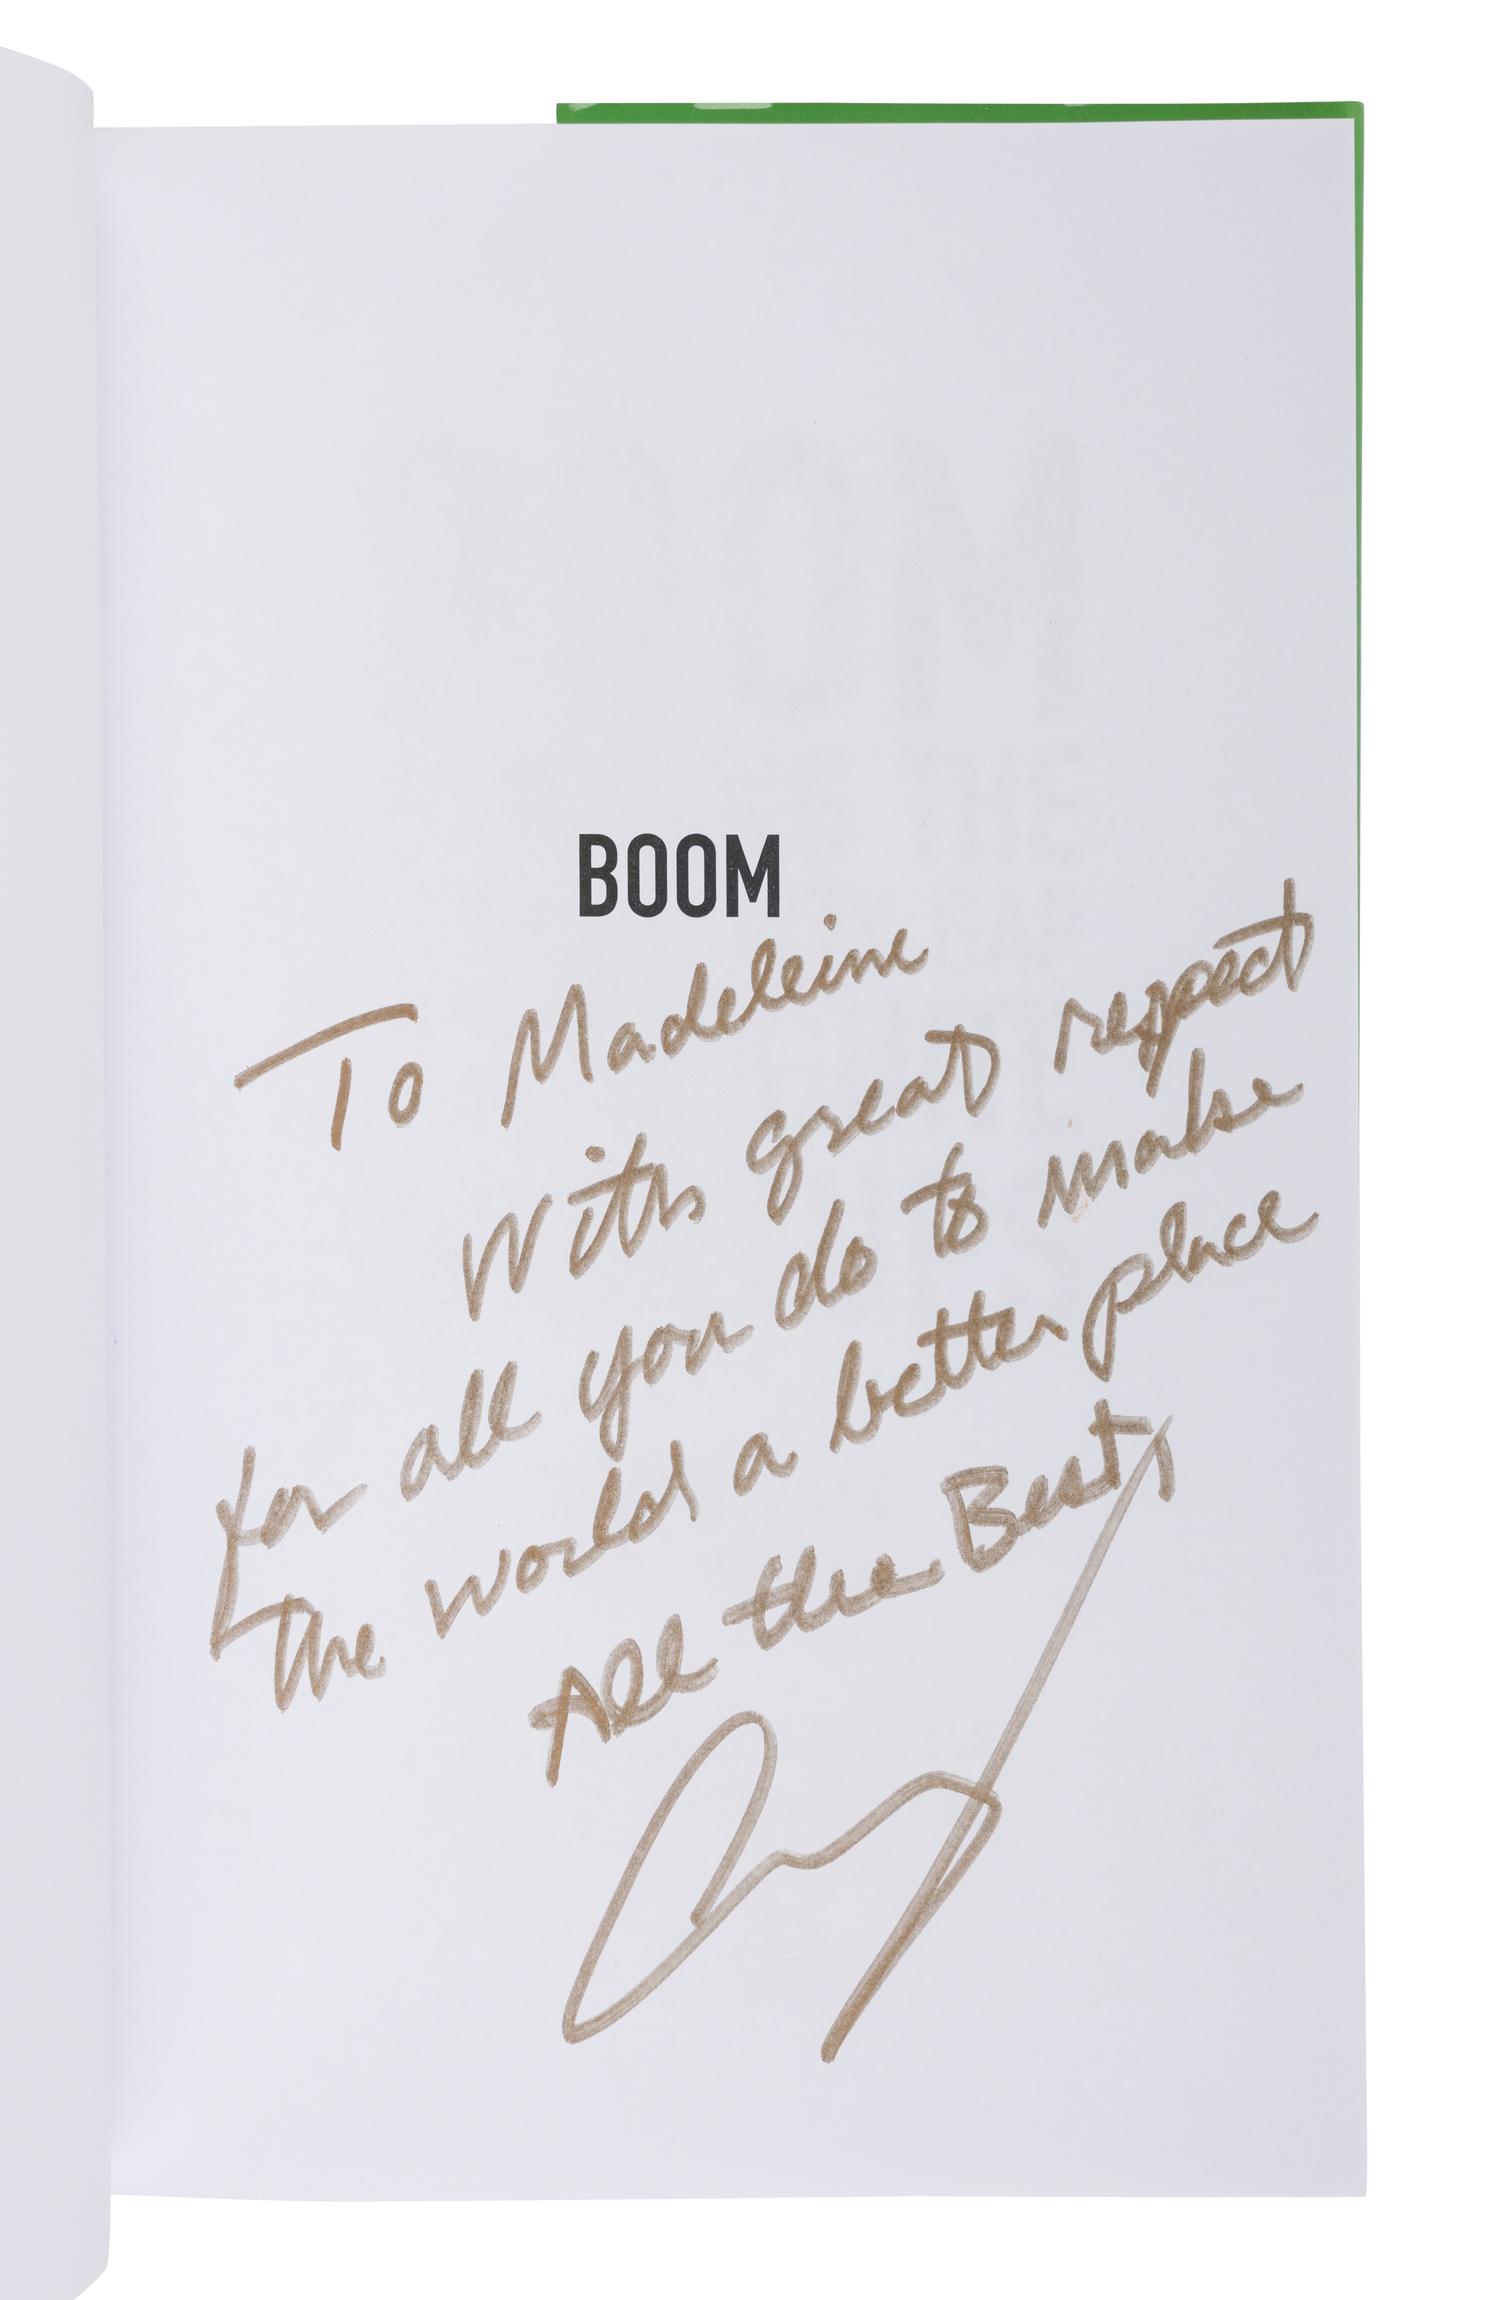 BOOM
To Madeleine
With great respect
for all you do to make
the world a better place
All the Best,